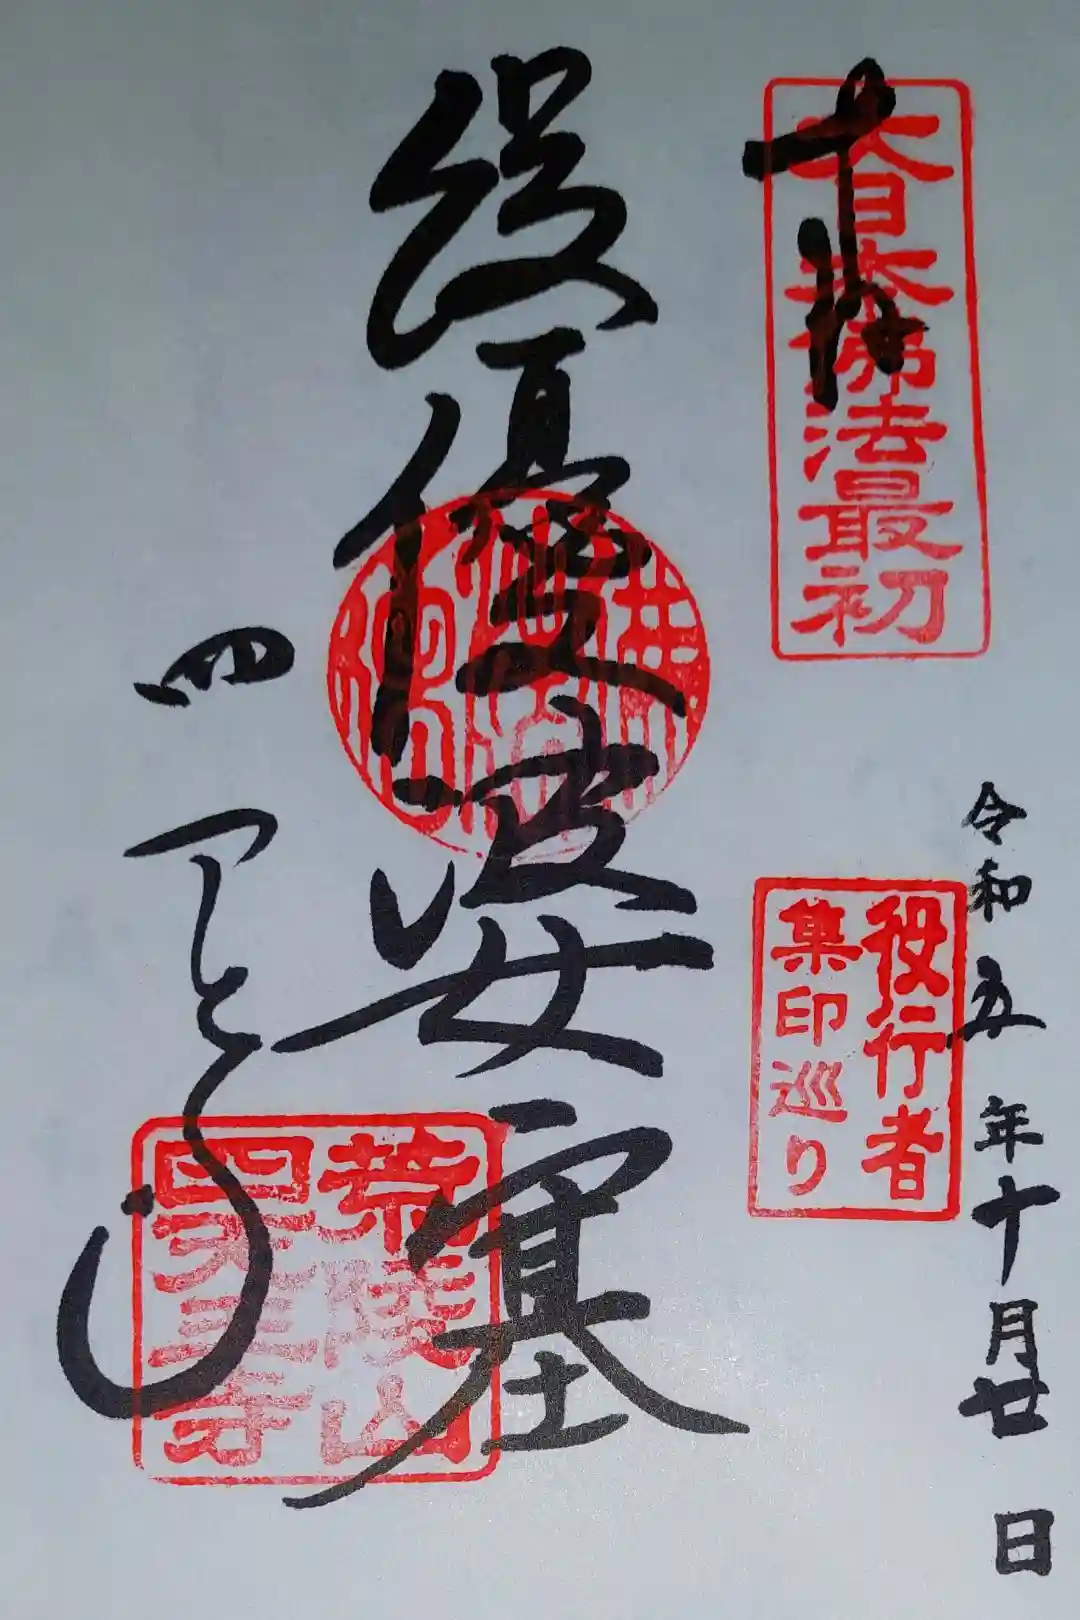 令和五年十月廿日
奉拝
大日本佛法最初
役行者
集印巡り
役優婆塞
荒陵山
四天王寺
四天王寺